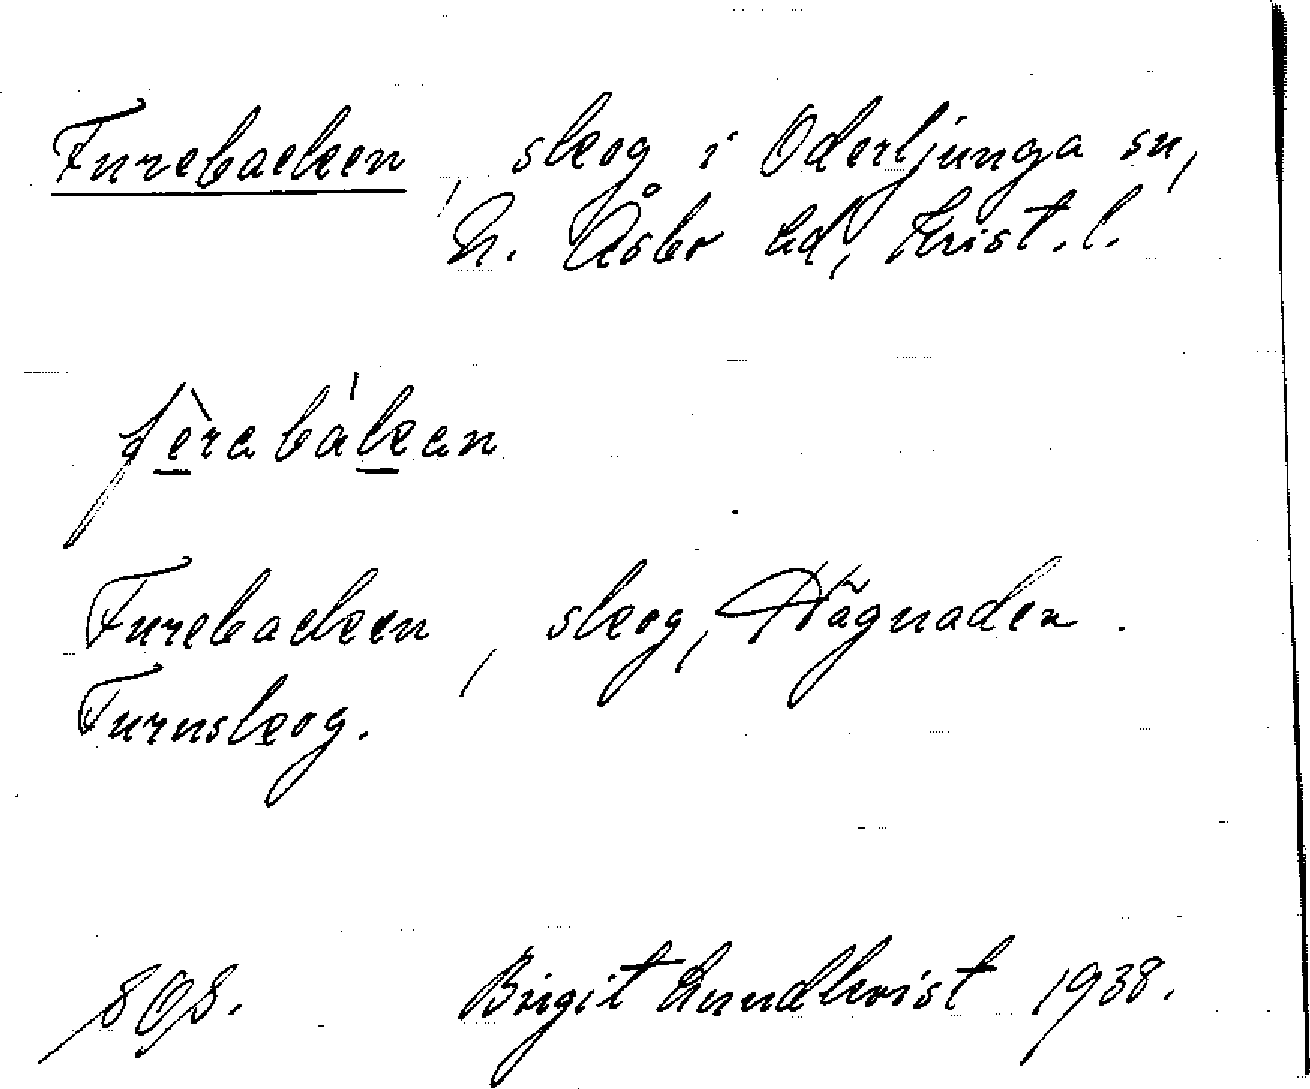 Furebacken, skog i Oderljunga sn,
N. Åsbo hd, Krist. l.
fèrabák̲an
Furebacken, skog, Hägnaden.
Furuskog.
808. Birgit Lundkvist 1938.